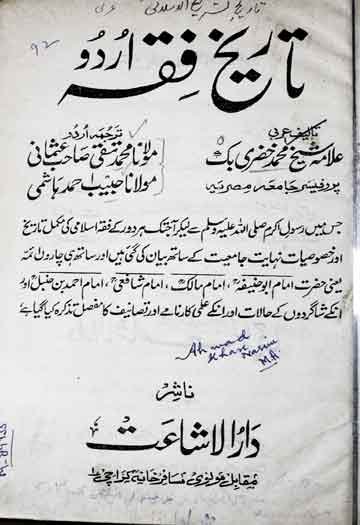 تاریخ التشریع الاسلامی
عربی
92
تاریخ فقہ اردو
تالیف عربی
علامہ شیخ محمد خضری بک
پروفیسر جامعہ مصریہ
ترجمہ اردو
مولانا محمد تقی صاحب عثمانی
مولانا حبیب احمد ہاشمی
جس میں رسول اکرم صلی اللہ علیہ وسلم سے لیکر آجتک ہر دور کے فقہ اسلامی کی مکمل تاریخ
اور خصوصیات نہایت جامعیت کے ساتھ بیان کی گئی ہیں اور ساتھ ہی چاروں ائمہ
یعنی حضرت امام ابو حنیفہؒ، امام مالکؒ، امام شافعیؒ، امام احمد بن حنبلؒ اور
انکے شاگردوں کے حالات اور انکے علمی کارنامے اور تصانیف کا مفصل تذکرہ کیا گیا ہے
Ahmad
Khan
M.A.
ناشر
دار الاشاعت
مقابل مولوی مسافر خانہ کراچی ۱